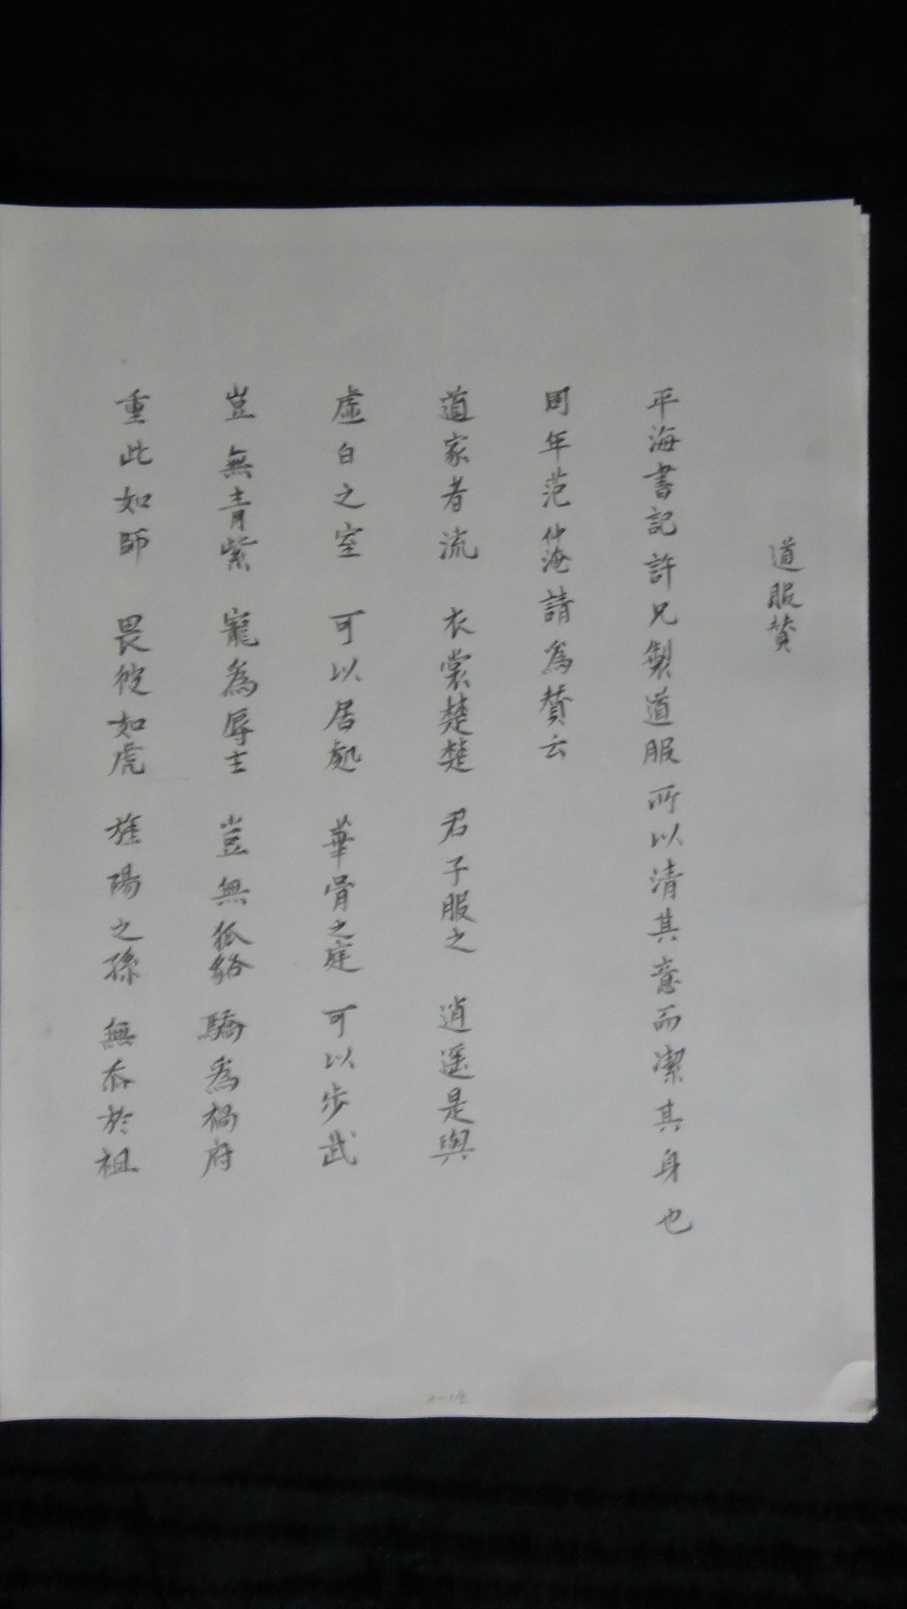 道服贊
平海書記許兄製道服所以清其意而潔其身也
同年范仲淹請為贊云
道家者流 衣裳楚楚 君子服之 逍遥是與
虛白之室 可以居處 華胥之庭 可以步武
豈無青紫 寵為辱主 豈無狐貉 驕為禍府
重此如師 畏彼如虎 旌陽之孫 無忝於祖